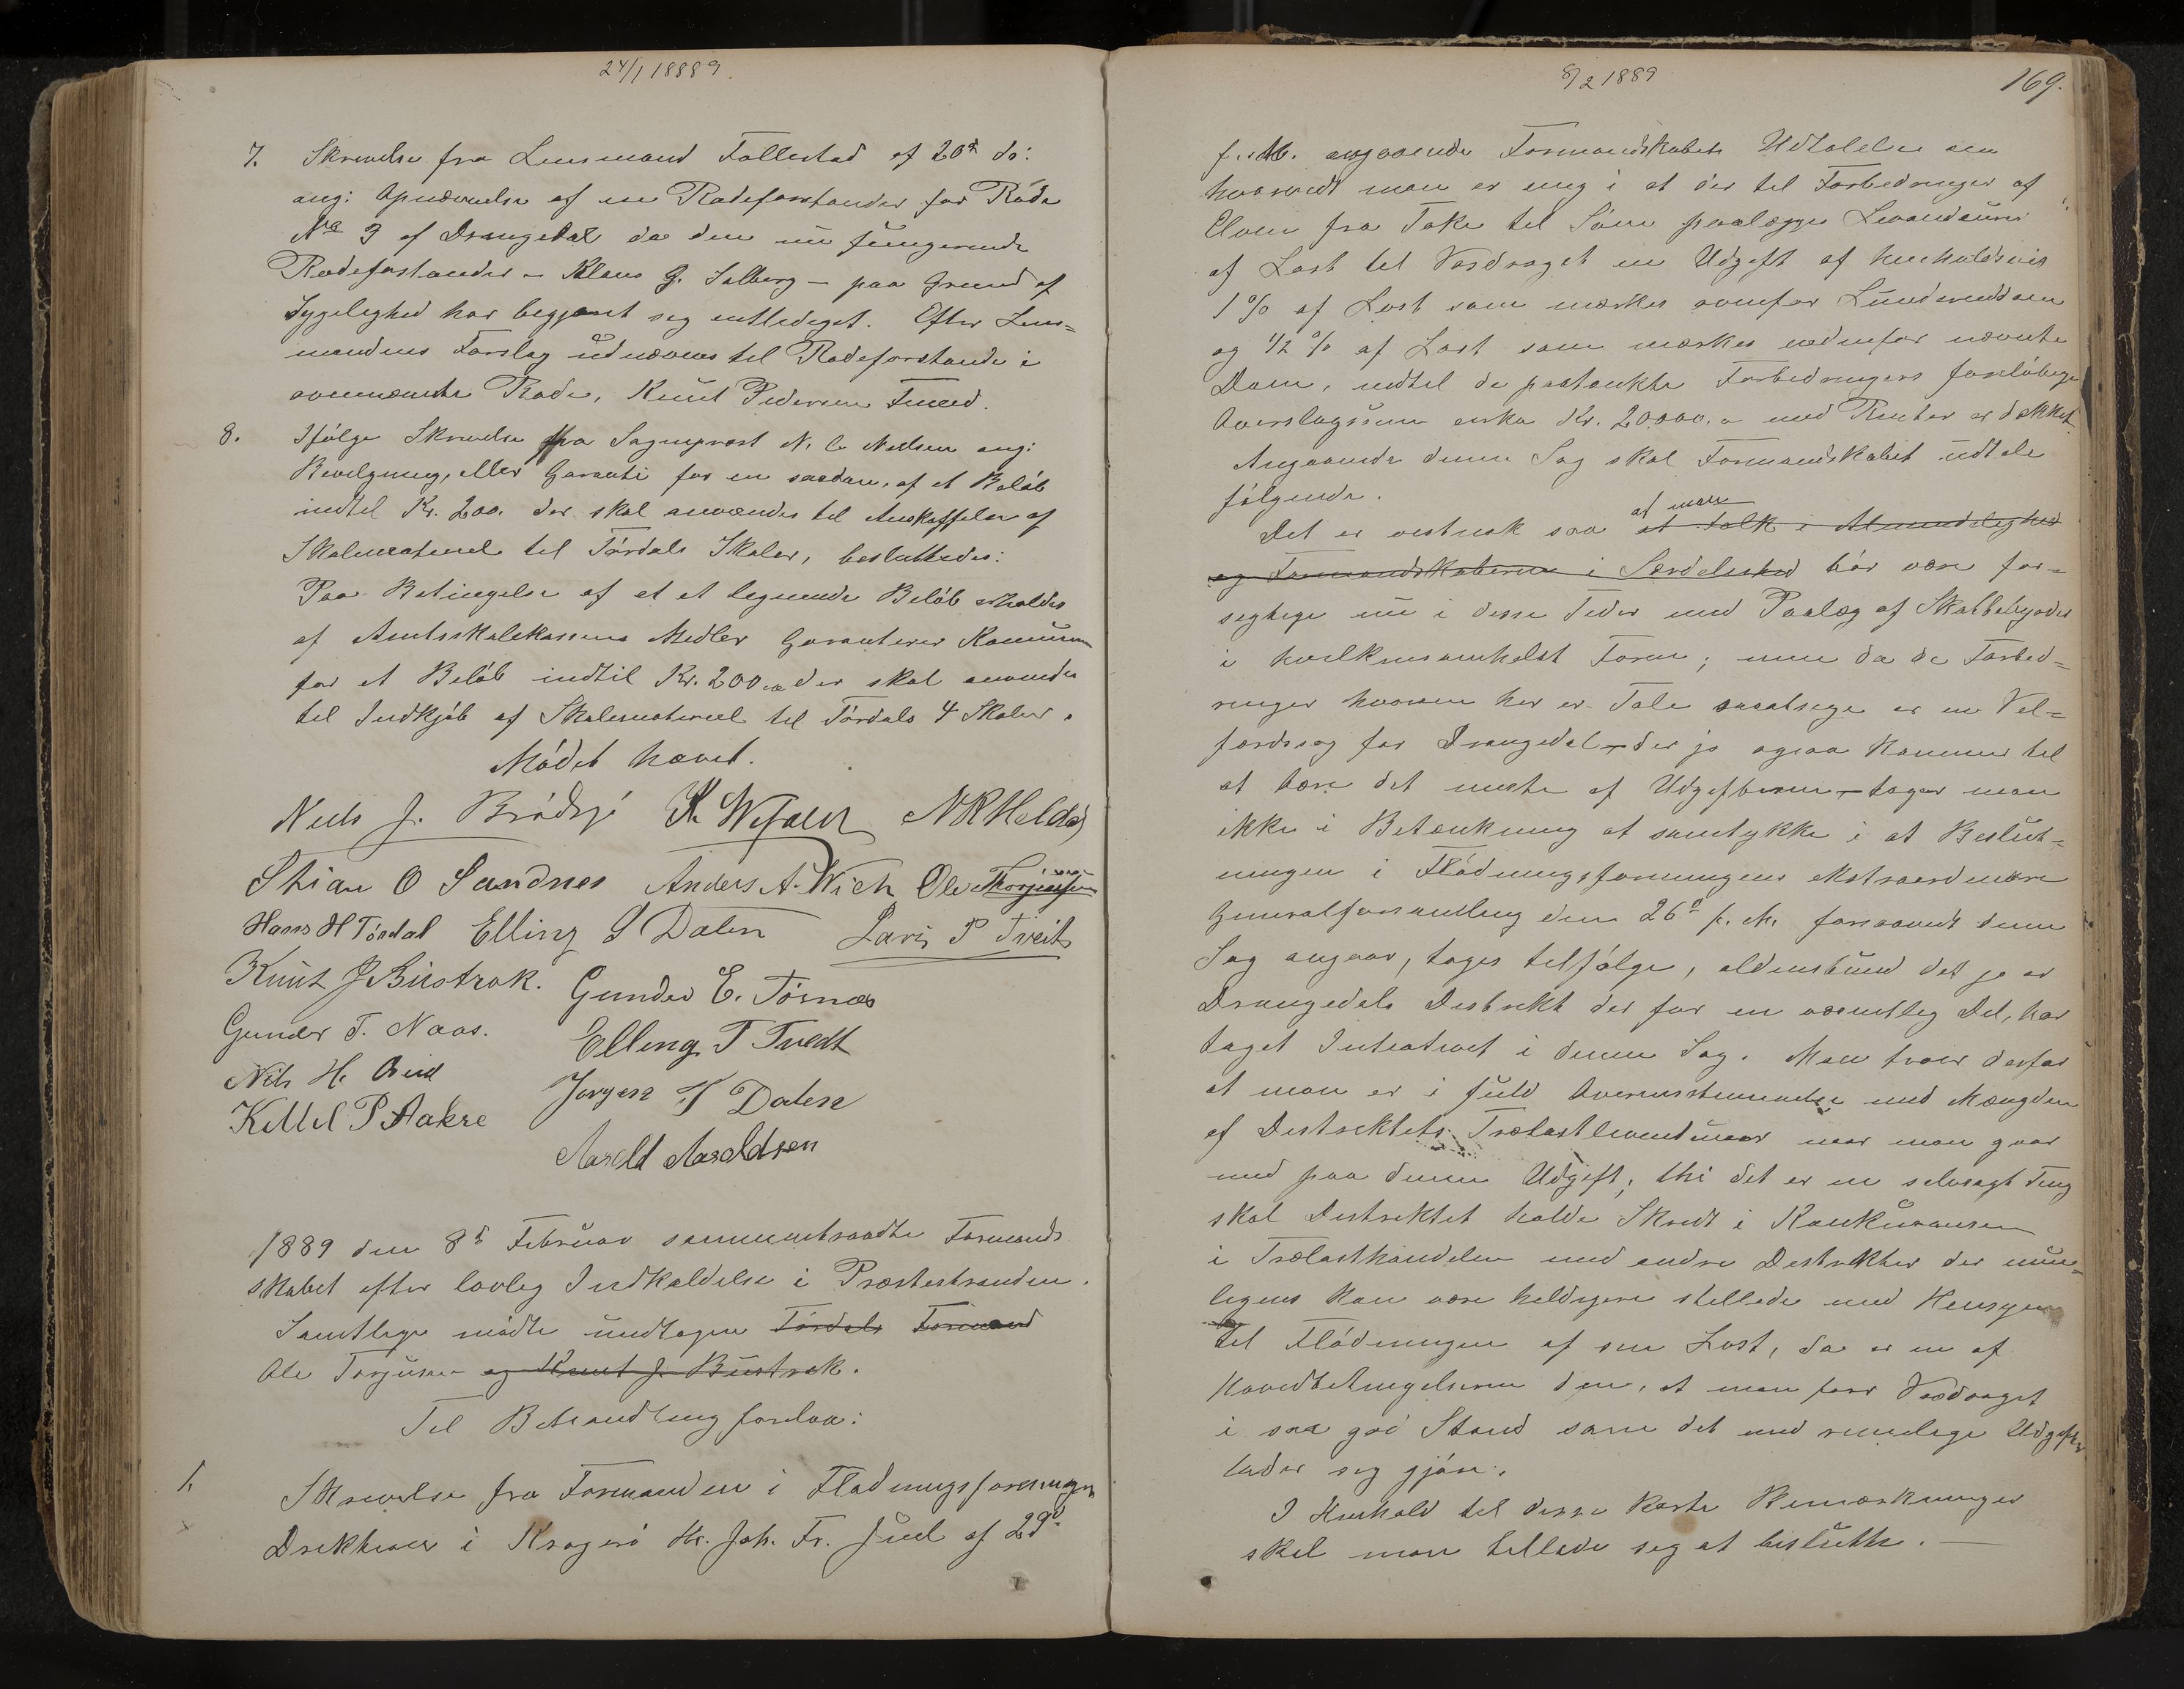 24/1 18889.
7. Skrivelse fra Lensmand Tollestad af 20d ds:
ang: Opnævnelse af en Rodeforstander for Rode
No 3 af Drangedal da den nu fungerende
Rodeforstander – Klaus G. Solberg – paa Grund af
Sygelighed har begjæret sig entlediget. Efter Lens=
mandens Forslag udnævnes til Rodeforstander i
ovennævnte Rode, Knut Pedersen Tveed.
8. Ifølge Skrivelse fra Sogneprest N. C. Nielsen ang:
Bevilgning, eller Garanti for en saadan, af et Beløb
indtil Kr. 200. der skal anvendes til Anskaffelse af
Skolemateriel til Tørdals Skoler, besluttedes:
Paa Betingelse af at et lignende Beløb erholdes
af Amtsskolekassens Midler Garanterer Kommunen
for et Beløb indtil Kr. 200 der skal anvendes
til Indkjøb af Skolemateriel til Tørdals 4 Skoler.
Mødet hævet.
Niels J. Brødsjø K. Wefald N R Heldø
Stian O Sandnes Anders A. Wich Ole Thorjussen
Hans H Tørdal Elling S Dalen Lars P Tveit
Knut J Bustrak. Gunder E. Tørnes
Gunder T. Naas. Elling T Tvedt
Nils H.
Jørgen T Dalen
Kittel P Aakre
Aasold Aasoldsen
1889 den 8d Februar sammentraadte Formand
skabet efter lovlig Indkaldelse i Præstestranden.
Samtlige mødte undtagen Tørdals Formand
Ole Torjusen og Knut J. Bustrak.
Til Behandling forelaa:
1. Skrivelse fra Formanden i Flødningsforeningens
Direktion i Kragerø Hr. Joh. Fr. Juel af 29d
8/2 1889
169.
f. M. angaaende Formandskabets Udtalelse om
hvorvidt man er enig i at der til Forbedringer af
Elven fra Toke til Søen paalægges Leverandører
af Last til Vasdraget en Udgift af henholdsvis
1 % af Last som mærkes ovenfor Lundereddam
og 1/2 % af Last som mærkes nedenfor nævnte
Dam, indtil de paatænkte Forbedringers foreløbige
Overslagssum cirka Kr. 20,000. med Renter er dækket.
Angaaende denne Sag skal Formandskabet udtale
følgende.
at man
Det er vistnok saa at Folk i Almindelighed
og Formandskaberne i Særdeleshed bør være for=
sigtige nu i disse Tider med Paalæg af Skattebyrder
i hvilkensomhelst Form; men da de Forbed=
ringer hvorom her er Tale saaatsige er en Vel=
færdssag for Drangedal – der jo ogsaa kommer til
at bære det meste af Udgifterne – tager man
ikke i Betænkning at samtykke i at Beslut=
ningen i Flødningsforeningens ekstraordinære
Generalforsamling den 26d f. M. forsaavidt denne
Sag angaar, tages tilfølge, aldenstund det jo er
Drangedals Distrikt der for en væsentlig Del, har
taget Initiativet i denne Sag. Man tror derfor
at man er i fuld Overensstemmelse med Mængden
af Distriktets Trælastleverandører naar man gaar
med paa denne Udgift; thi det er en selvsagt Ting
skal Distriktet holde Skridt i Konkurransen
i Trælasthandelen med andre Distrikter der mu=
ligens kan være heldigere stillede med Hensyn
til Flødningen af sin Last, da er en af
Hovedbetingelserne den, at man faar Vasdraget
i saa god Stand som det med rimelige Udgifter
lader sig gjøre.
I Henhold til disse korte Bemærkninger
skal man tillade sig at beslutte. —